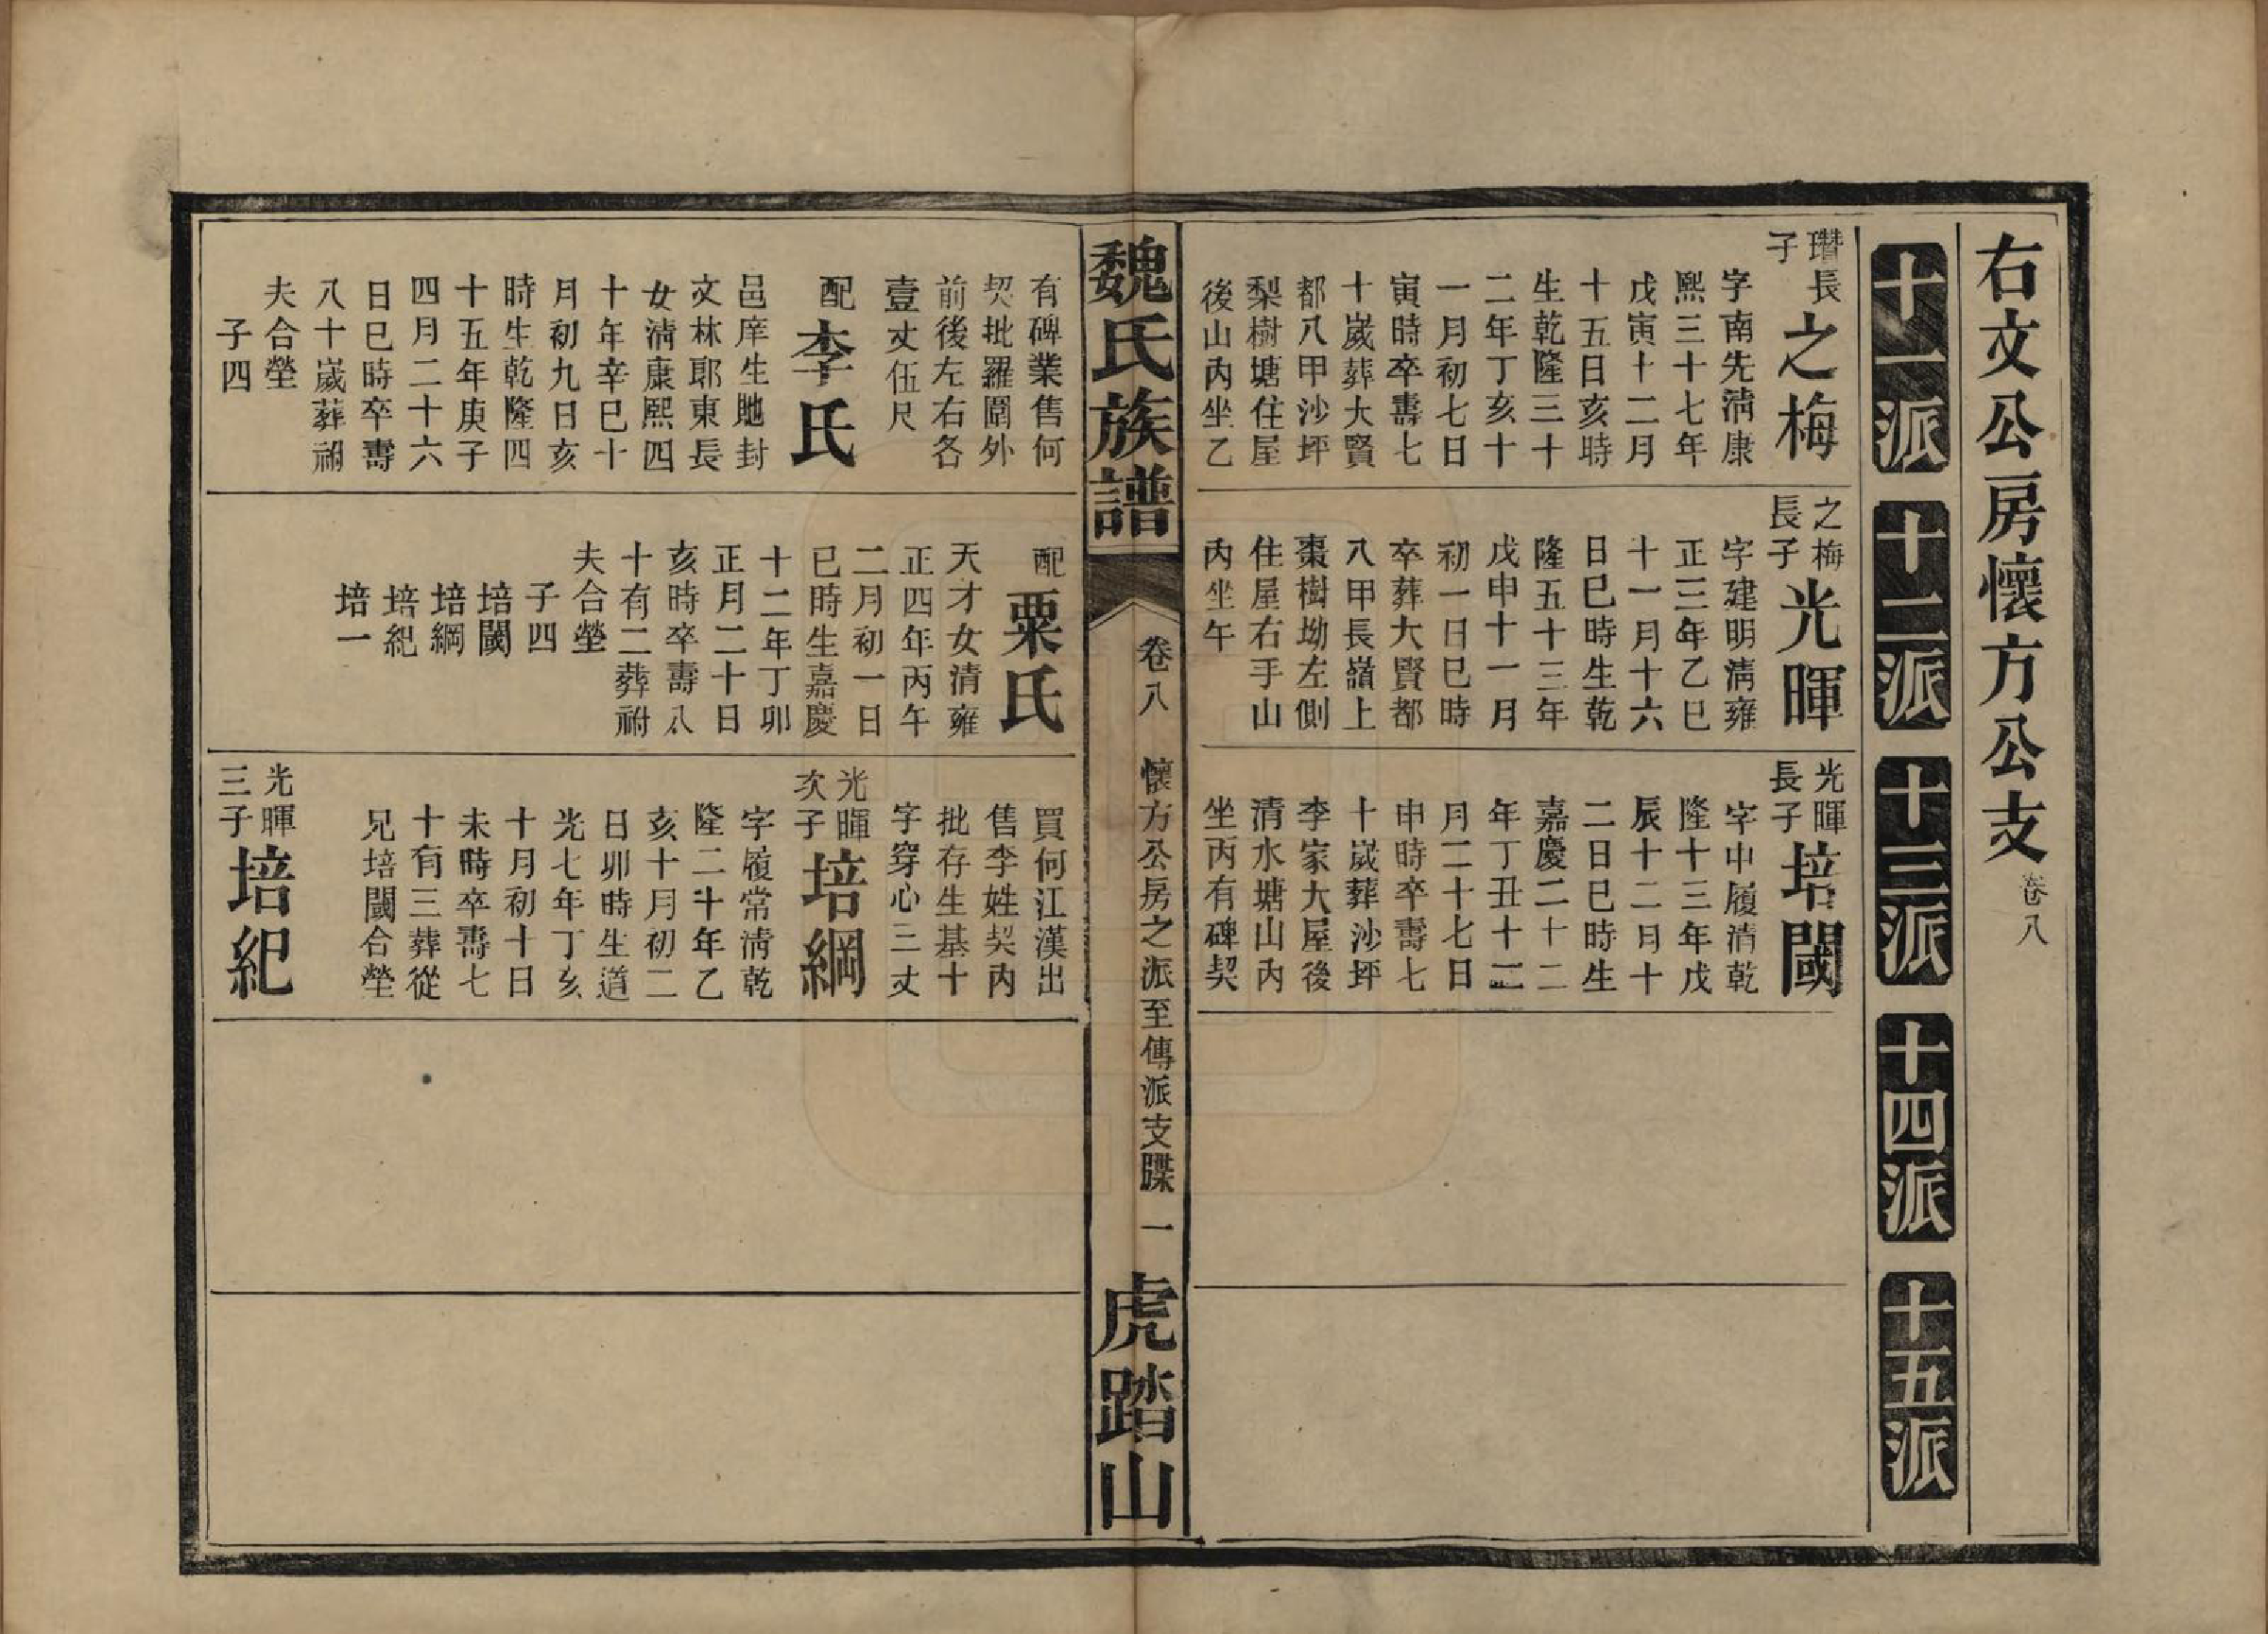 右文公房懷方公支 卷八
十一派
十二派
十三派
十四派
十五派
瓚長
子
之梅
字南先清康
熙三十七年
戊寅十二月
十五日亥時
生乾隆三十
二年丁亥十
一月初七日
寅時卒壽七
十嵗葬大賢
都八甲沙坪
梨樹塘住屋
後山內坐乙
之梅
長子
光暉
字建明清雍
正三年乙巳
十一月十六
日巳時生乾
隆五十三年
戊申十一月
初一日巳時
卒葬大賢都
八甲長嶺上
棗樹坳左側
住屋右手山
內坐午
光暉
長子
培閾
字中履清乾
隆十三年戊
辰十二月十
二日巳時生
嘉慶二十二
年丁丑十二
月二十七日
申時卒壽七
十嵗葬沙坪
李家大屋後
清水塘山內
坐丙有碑契
魏氏族譜
卷八
懷方公房之派至傳派支牒
一
虎踏山
有碑業售何
契批羅圍外
前後左右各
壹丈伍尺
配
李氏
邑庠生貤封
文林郎東長
女清康熙四
十年辛巳十
月初九日亥
時生乾隆四
十五年庚子
四月二十六
日巳時卒壽
八十嵗葬祔
夫合塋
子四
配
粟氏
天才女清雍
正四年丙午
二月初一日
巳時生嘉慶
十二年丁卯
正月二十日
亥時卒壽八
十有二葬祔
夫合塋
子四
培閾
培綱
培紀
培一
買何江漢出
售李姓契內
批存生基十
字穿心三丈
光暉
次子
培綱
字履常清乾
隆二十年乙
亥十月初二
日卯時生道
光七年丁亥
十月初十日
未時卒壽七
十有三葬從
兄培閾合塋
光暉
三子
培紀